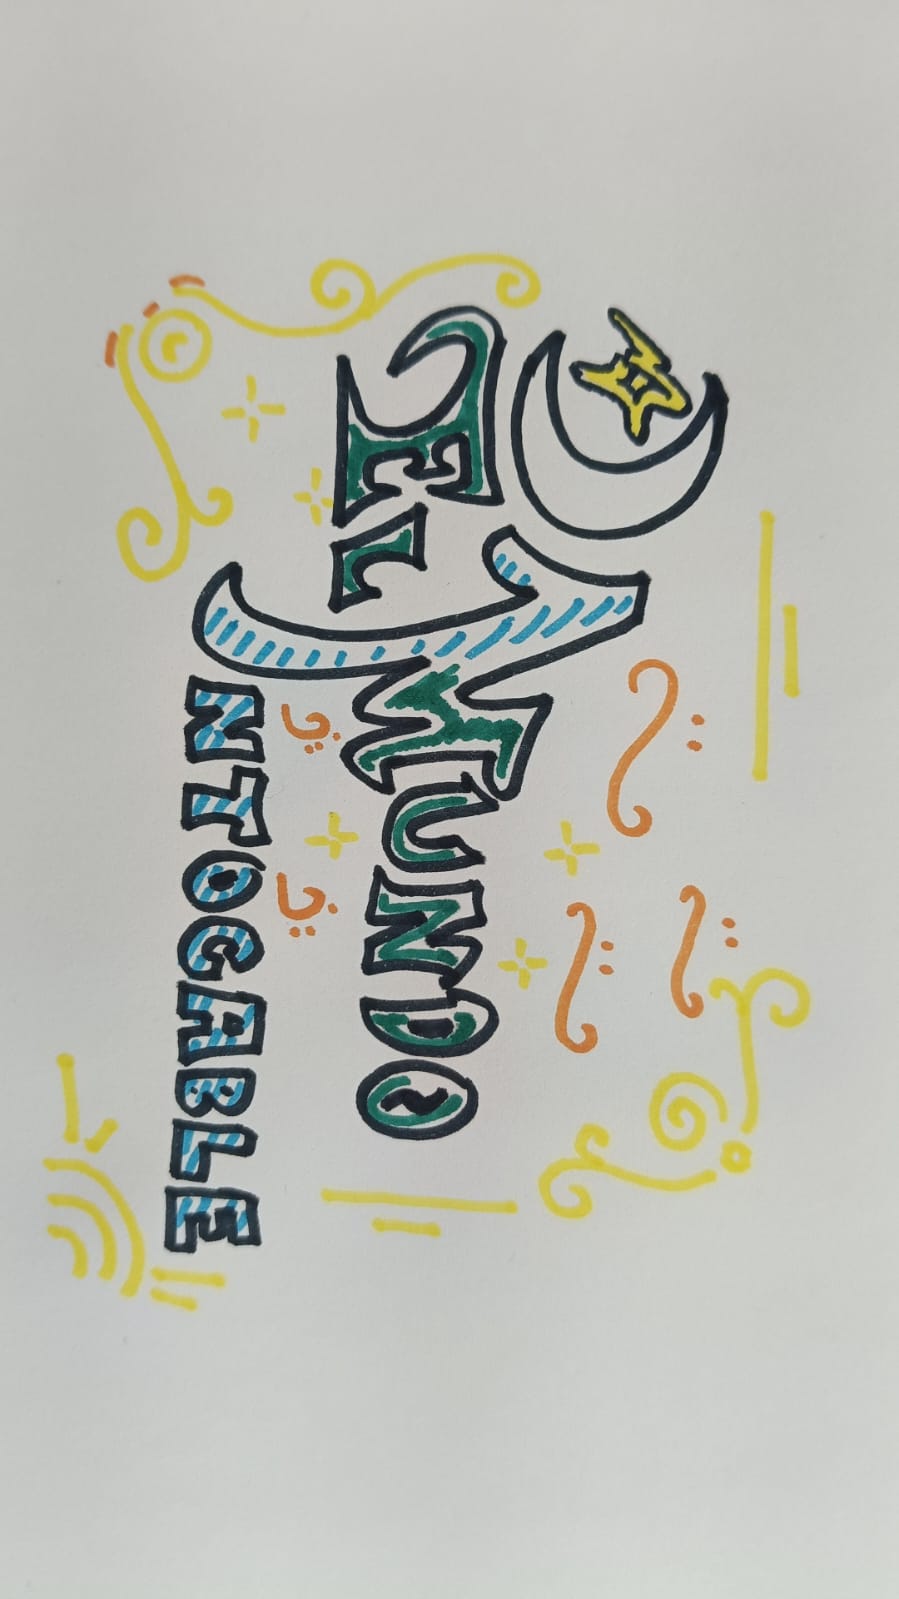 EL MUNDO
INTOGABLE